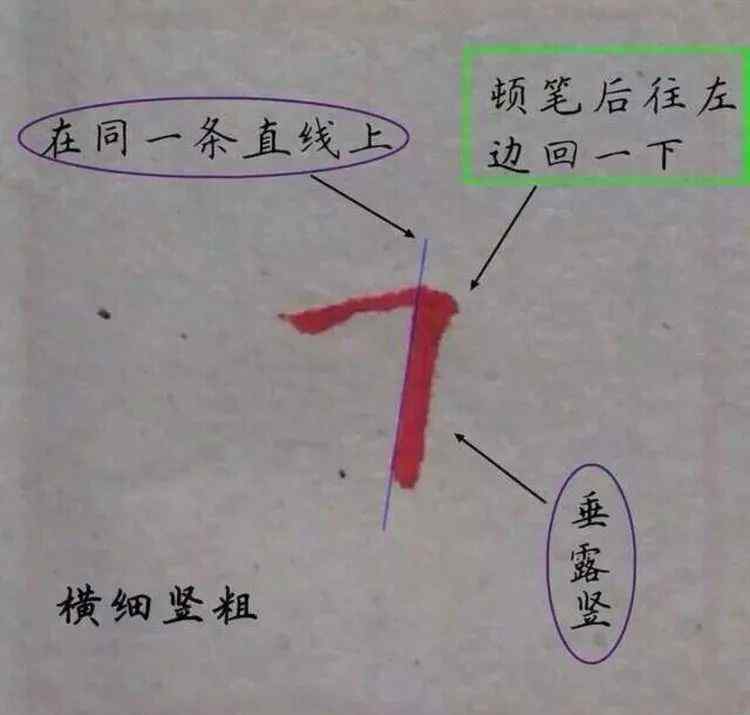 在同一条直线上
顿笔后往左
边回一下
垂露竖
横细竖粗